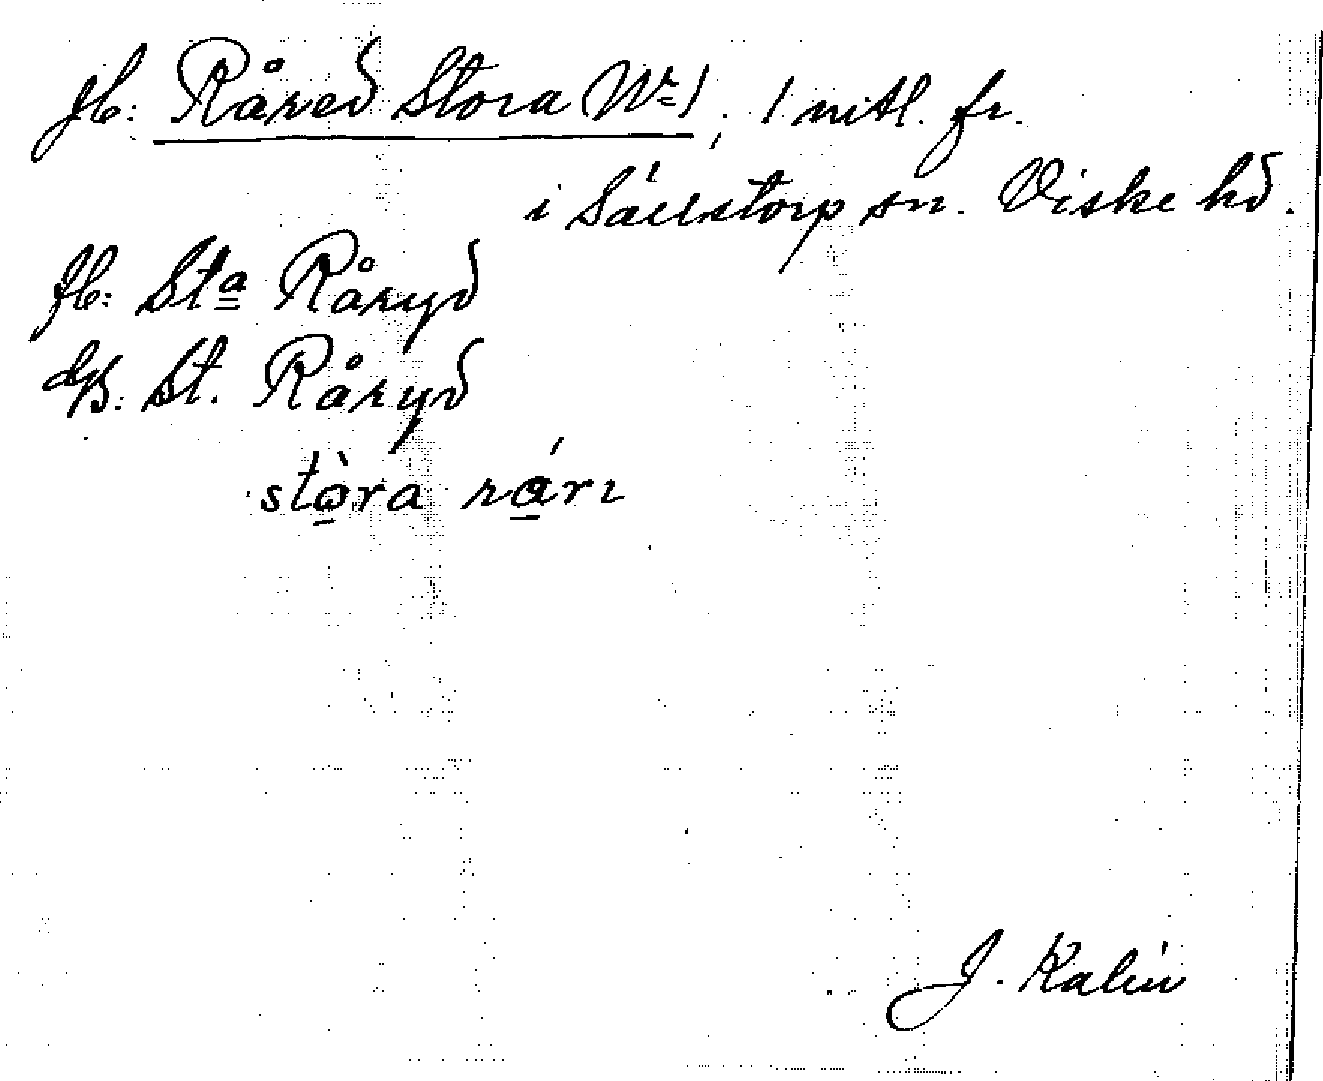 jb: Råred Stora Nr 1, 1 mtl. fr.
i Sállstorp sn. Viske hd.
fb: Sta Råryd
GB: St. Råryd
stò̱ra rá̱rı
J. Kalén